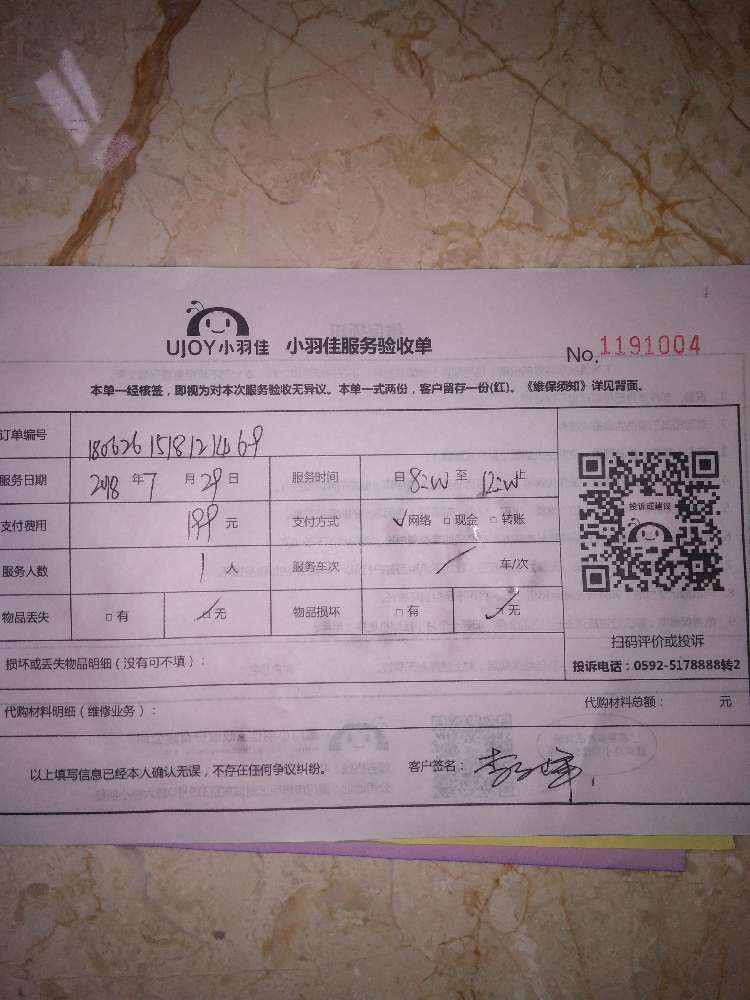 UJOY小羽佳 小羽佳服务验收单
No.1191004
本单一经核签，即视为对本次服务验收无异议。本单一式两份，客户留存一份(红)。《维保须知》详见背面。
订单编号
服务日期 2018 年 7 月 29 日 服务时间 自 8:00 至 12:00 止
支付费用 199 元 支付方式 ✓网络 □现金 □转账
服务人数 1 人 服务车次 / 车/次
物品丢失 □有 ☑无 物品损坏 □有 ☑无
投诉或建议
扫码评价或投诉
损坏或丢失物品明细（没有可不填）：
投诉电话：0592-5178888转2
代购材料明细（维修业务）： 代购材料总额： 元
以上填写信息已经本人确认无误，不存在任何争议纠纷。 客户签名：